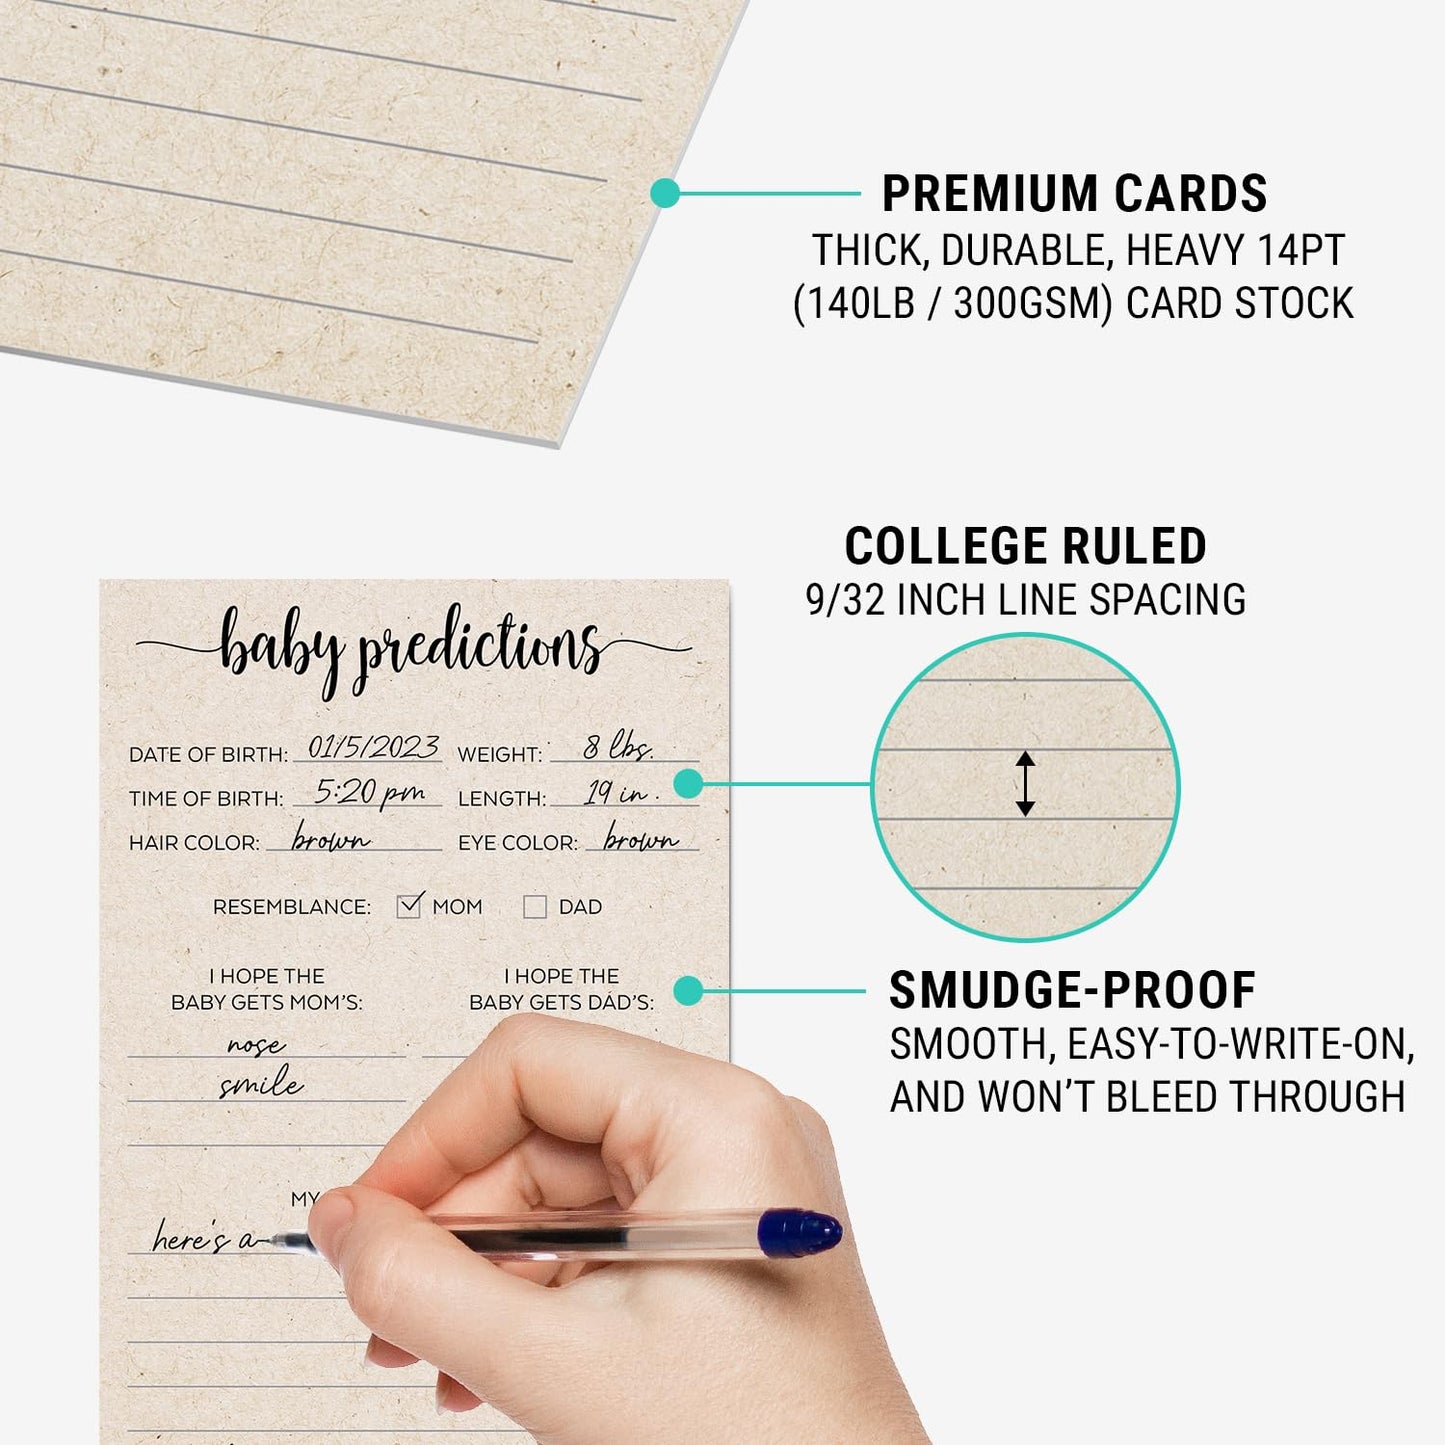 PREMIUM CARDS
THICK, DURABLE, HEAVY 14PT
(140LB / 300GSM) CARD STOCK
COLLEGE RULED
9/32 INCH LINE SPACING
baby predictions
DATE OF BIRTH: 01/5/2023 WEIGHT: 8 lbs.
TIME OF BIRTH: 5:20 pm LENGTH: 19 in.
HAIR COLOR: brown EYE COLOR: brown
RESEMBLANCE: MOM DAD
I HOPE THE
BABY GETS MOM'S:
I HOPE THE
BABY GETS DAD'S:
nose
smile
SMUDGE-PROOF
SMOOTH, EASY-TO-WRITE-ON,
AND WON'T BLEED THROUGH
MY
here's a